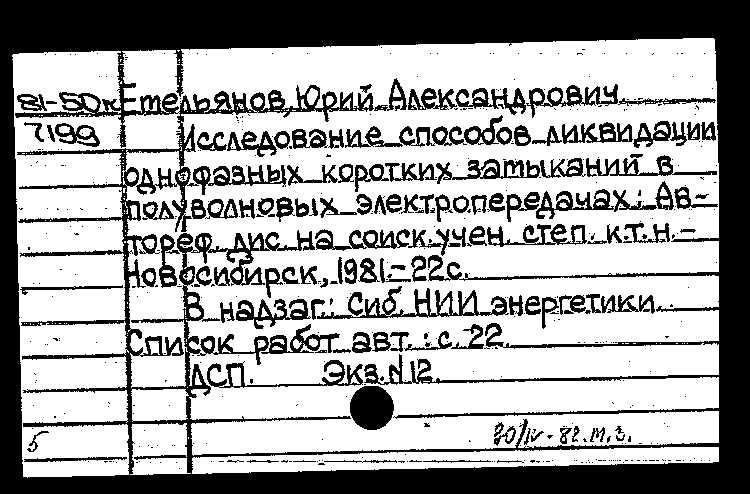 81-50к Емельянов, Юрий Александрович
7199 Исследование способов ликвидации
однофазных коротких замыканий в
полуволновых электропередачах: Ав-
тореф. дис. на соиск. учен. степ. к.т.н.-
Новосибирск, 1981.-22с.
В надзаг.: Сиб. НИИ энергетики.
Список работ авт.: с. 22.
ДСП. Экз. №12.
5 20/IV-82.